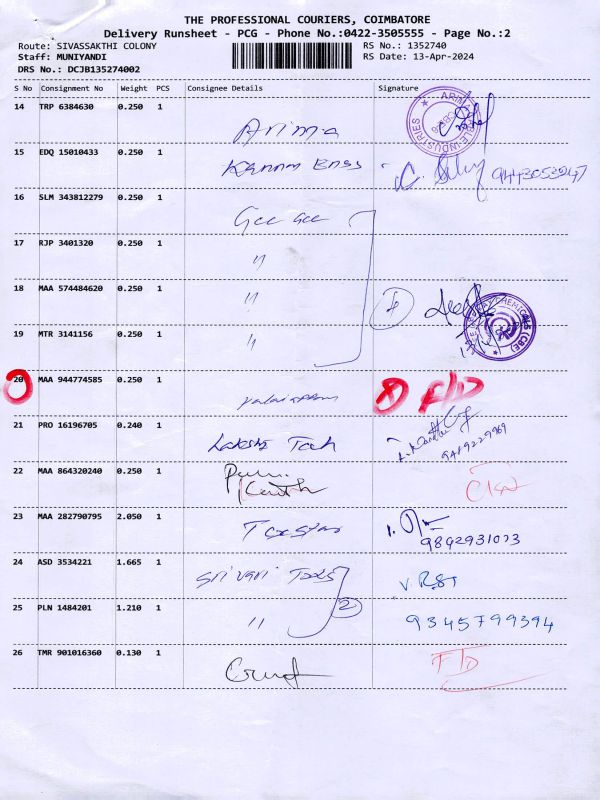 THE PROFESSIONAL COURIERS, COIMBATORE
Delivery Runsheet - PCG - Phone No.:0422-3505555 - Page No.:2
Route: SIVASSAKTHI COLONY
Staff: MUNIYANDI
DRS No.: DCJB135274002
RS No.: 1352740
RS Date: 13-Apr-2024
S No Consignment No Weight PCS Consignee Details Signature
14 TRP 6384630 0.250 1
Arima
15 EDQ 15010433 0.250 1
9443053247
16 SLM 343812279 0.250 1
Gee Gee
17 RJP 3401320 0.250 1
"
18 MAA 574484620 0.250 1
" 4
19 MTR 3141156 0.250 1
"
20 MAA 944774585 0.250 1
21 PRO 16196705 0.240 1
Lakshmi Tech
22 MAA 864320240 0.250 1
23 MAA 282790795 2.050 1
9892931073
24 ASD 3534221 1.665 1
Sri Vari Texs
25 PLN 1484201 1.210 1
" 2 9345799394
26 TMR 901016360 0.130 1